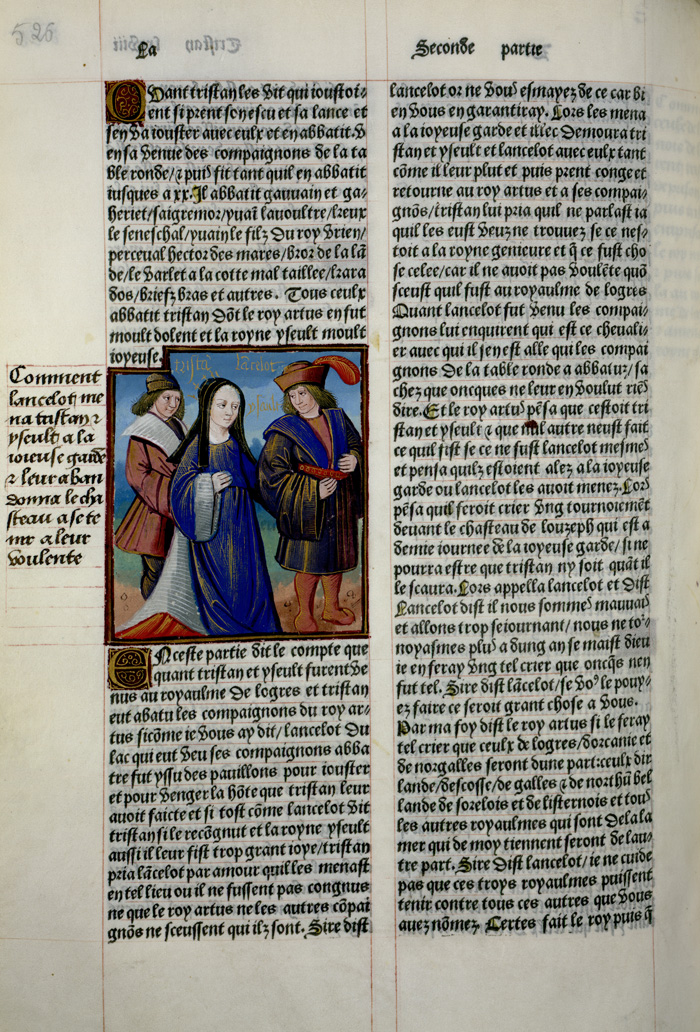 526
La
Seconde partie
Quant tristan les vit qui ioustoi-
ent si prent son escu et sa lance et
sen va iouster auec eulx et en abbatit .v
en sa venue des compaignons de la ta
ble ronde/⁊ puis fit tant quil en abbatit
iusques a xx. Il abbatit gauuain et ga-
heriet/saigremor/yuaī lauoultre/kreux
le seneschal/yuain le filz du roy vrien/
perceual hector des mares/bror de la lā
de/le varlet a la cotte mal taillee/kara
dos/briefz bras et autres. Tous ceulx
abbatit tristan dōt le roy artus en fut
moult dolent et la royne yseult moult
ioyeuse.
tristā lancelot
yseult
Comment
lancelot me
na tristan ⁊
yseult a la
ioieuse garde
⁊ leur aban
donna le cha
steau a se te
nir a leur
voulente
En ceste partie dit le compte que
quant tristan et yseult furent ve
nus au royaulme de logres et tristan
eut abatu les compaignons du roy ar-
tus sicōme ie vous ay dit/lancelot du
lac qui eut veu ses compaignons abba
tre fut yssu des pauillons pour iouster
et pour venger la hōte que tristan leur
auoit faicte et si tost cōme lancelot vit
tristan si le recōgnut et la royne yseult
aussi il leur fist trop grant ioye/tristan
pria lācelot par amour quil les menast
en tel lieu ou il ne fussent pas congnus
ne que le roy artus ne les autres cōpai
gnōs ne sceussent qui ilz sont. Sire dist
lancelot or ne vous esmayez de ce car bi
en vous en garantiray. Lors les mena
a la ioyeuse garde et illec demoura tri
stan et yseult et lancelot auec eulx tant
cōme il leur plut et puis prent conge et
retourne au roy artus et a ses compai-
gnōs/tristan lui pria quil ne parlast ia
quil les eust veuz ne trouuez se ce nes-
toit a la royne genieure et q̄ ce fust cho
se celee/car il ne auoit pas voulēte quō
sceust quil fust au royaulme de logres
Quant lancelot fut venu les compai-
gnons lui enquirent qui est ce cheuali-
er auec qui il sen est alle qui les compai
gnons de la table ronde a abbatuz/sa
chez que oncques ne leur en voulut riēs
dire. Et le roy artus pēsa que cestoit tri
stan et yseult ⁊ que nul autre neust fait
ce quil fist se ce ne fust lancelot mesmes
et pensa quilz estoient alez a la ioyeuse
garde ou lancelot les auoit menez. Lors
pēsa quil feroit crier vng tournoiemēt
deuant le chasteau de louzeph qui est a
demie iournee de la ioyeuse garde/si ne
pourra estre que tristan ny soit quāt il
le scaura. Lors appella lancelot et dist
Lancelot dist il nous sommes mauuais
et allons trop seiournant/nous ne to²-
noyasmes plus a dung an se maist dieu
ie en feray vng tel crier que oncq̄s nen
fut tel. Sire dist lācelot/se vo⁹ le pouy-
ez faire ce seroit grant chose a vous.
Par ma foy dist le roy artus si le feray
tel crier que ceulx de logres/dorcanie et
de norgalles seront dune part:ceulx dir
lande/descosse/de galles ⁊ de northū bel
lande de sorelois et de listernois et tous
les autres royaulmes qui sont dela la
mer qui de moy tiennent seront de lau-
tre part. Sire dist lancelot/ie ne cuide
pas que ces troys royaulmes puissent
tenir contre tous ces autres que vous
auez nōmez. Certes fait le roy puis q̄